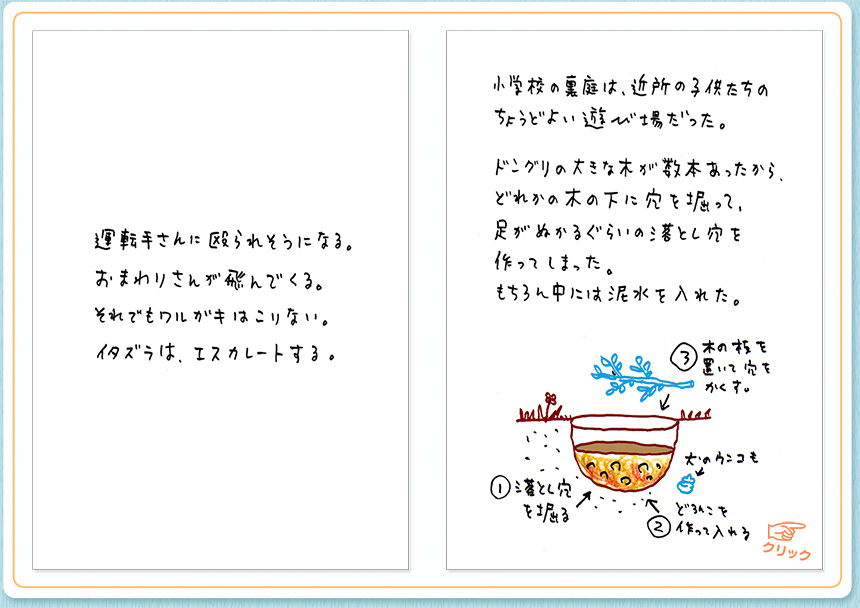 運転手さんに殴られそうになる。
おまわりさんが飛んでくる。
それでもワルガキはこりない。
イタズラは、エスカレートする。
小学校の裏庭は、近所の子供たちの
ちょうどよい遊び場だった。
ドングリの大きな木が数本あったから、
どれかの木の下に穴を掘って、
足がぬかるぐらいの落とし穴を
作ってしまった。
もちろん中には泥水を入れた。
③木の枝を
置いて穴を
かくす。
犬のウンコも
①落とし穴
を掘る
どろんこを
②作って入れる
クリック